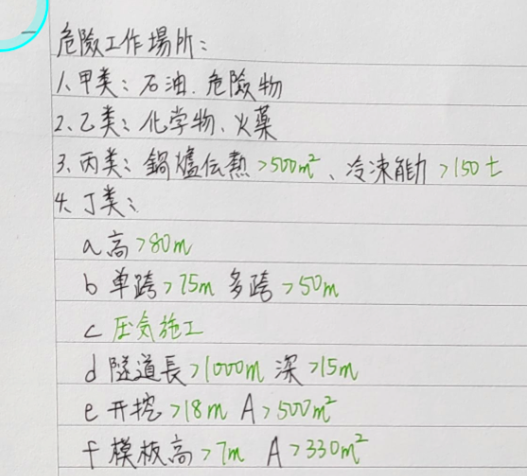 危險工作場所：
1、甲类：石油、危險物
2、乙类：化学物、火藥
3、丙类：鍋爐伝熱>500m²、冷凍能力>150t
4、丁类：
a 高>80m
b 单跨>75m 多跨>50m
c 圧気施工
d 隧道長>1000m 深>15m
e 开挖>18m A>500m²
f 模板高>7m A>330m²